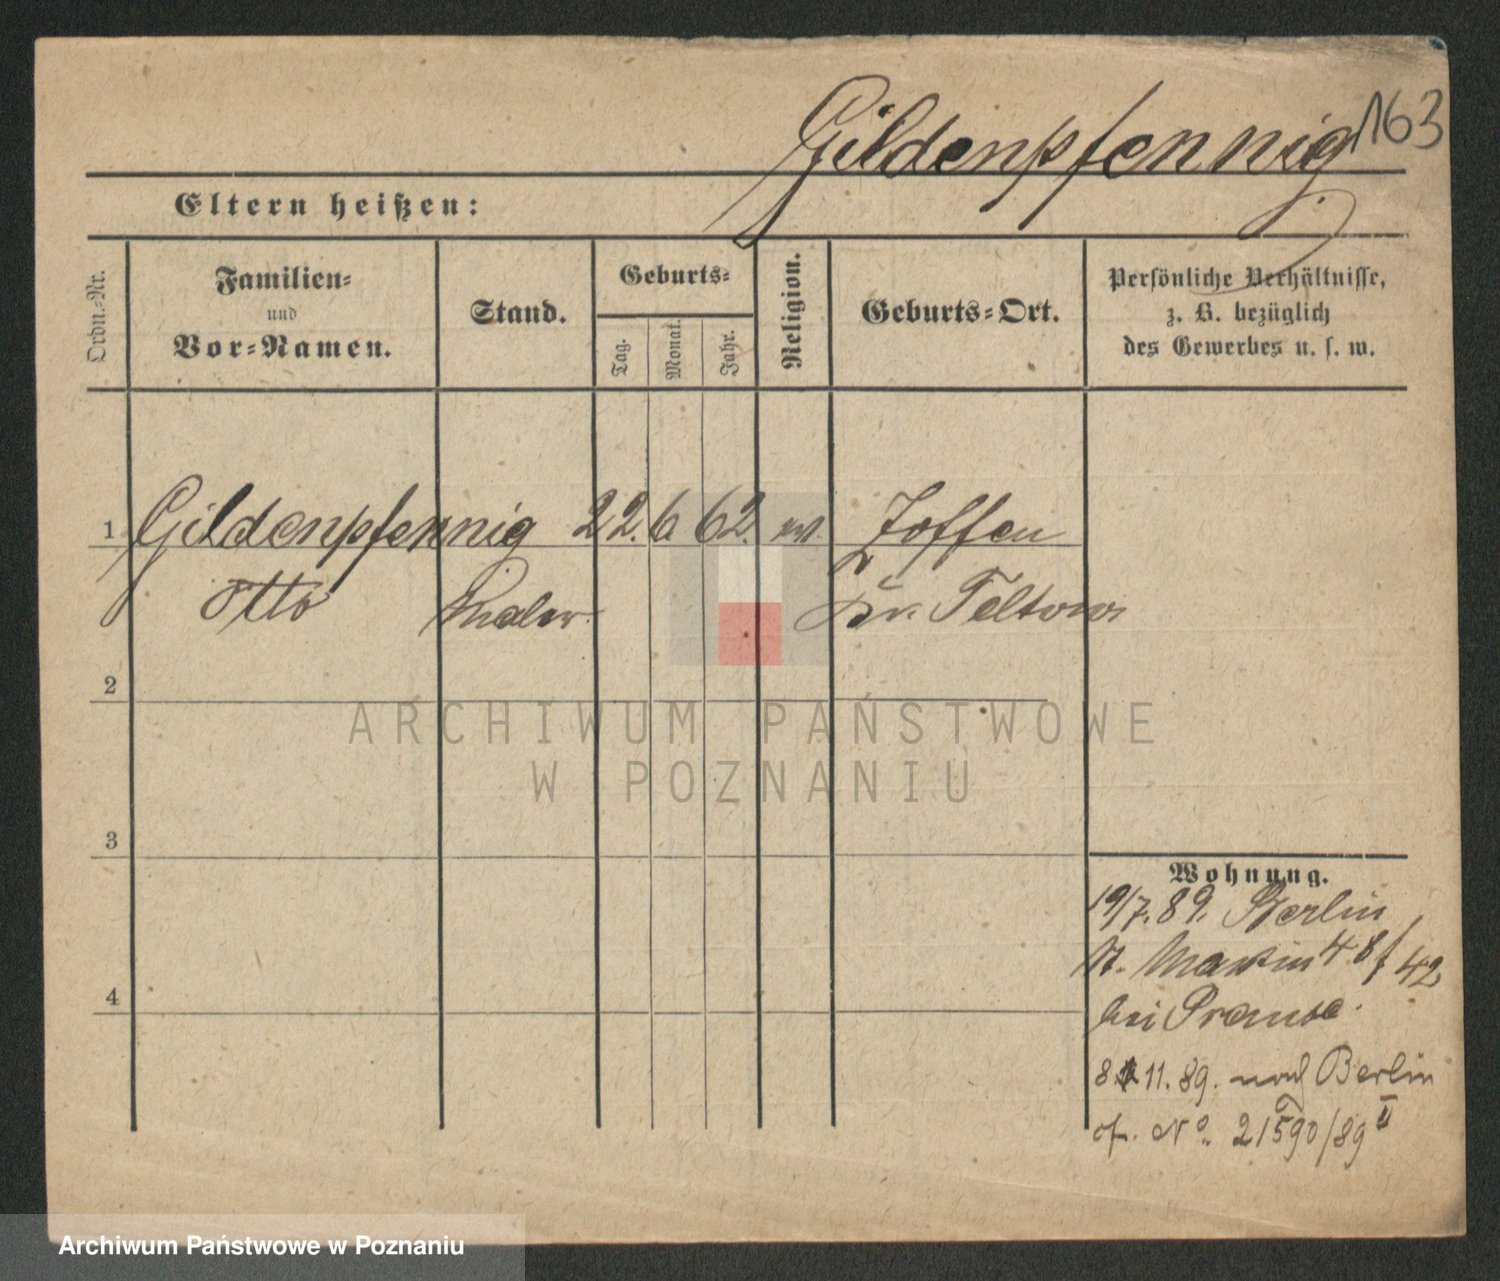 Gildenpfennig 163
Eltern heißen:
Ordn.-Nr.
Familien-
und
Vor-Namen.
Stand.
Geburts-
Tag.
Monat.
Jahr.
Religion.
Geburts-Ort.
Persönliche Verhältnisse,
z. B. bezüglich
des Gewerbes u. s. w.
1 Gildenpfennig 22. 6 62. ev. Zossen
Otto Maler Kr. Teltow
2
ARCHIWUM PAŃSTWOWE
W POZNANIU
3
4
Wohnung.
19/7. 89. Berlin
St. Martin 48/42
bei Prause.
8 11. 89. nach Berlin
cf. No. 21590/89 II
Archiwum Państwowe w Poznaniu